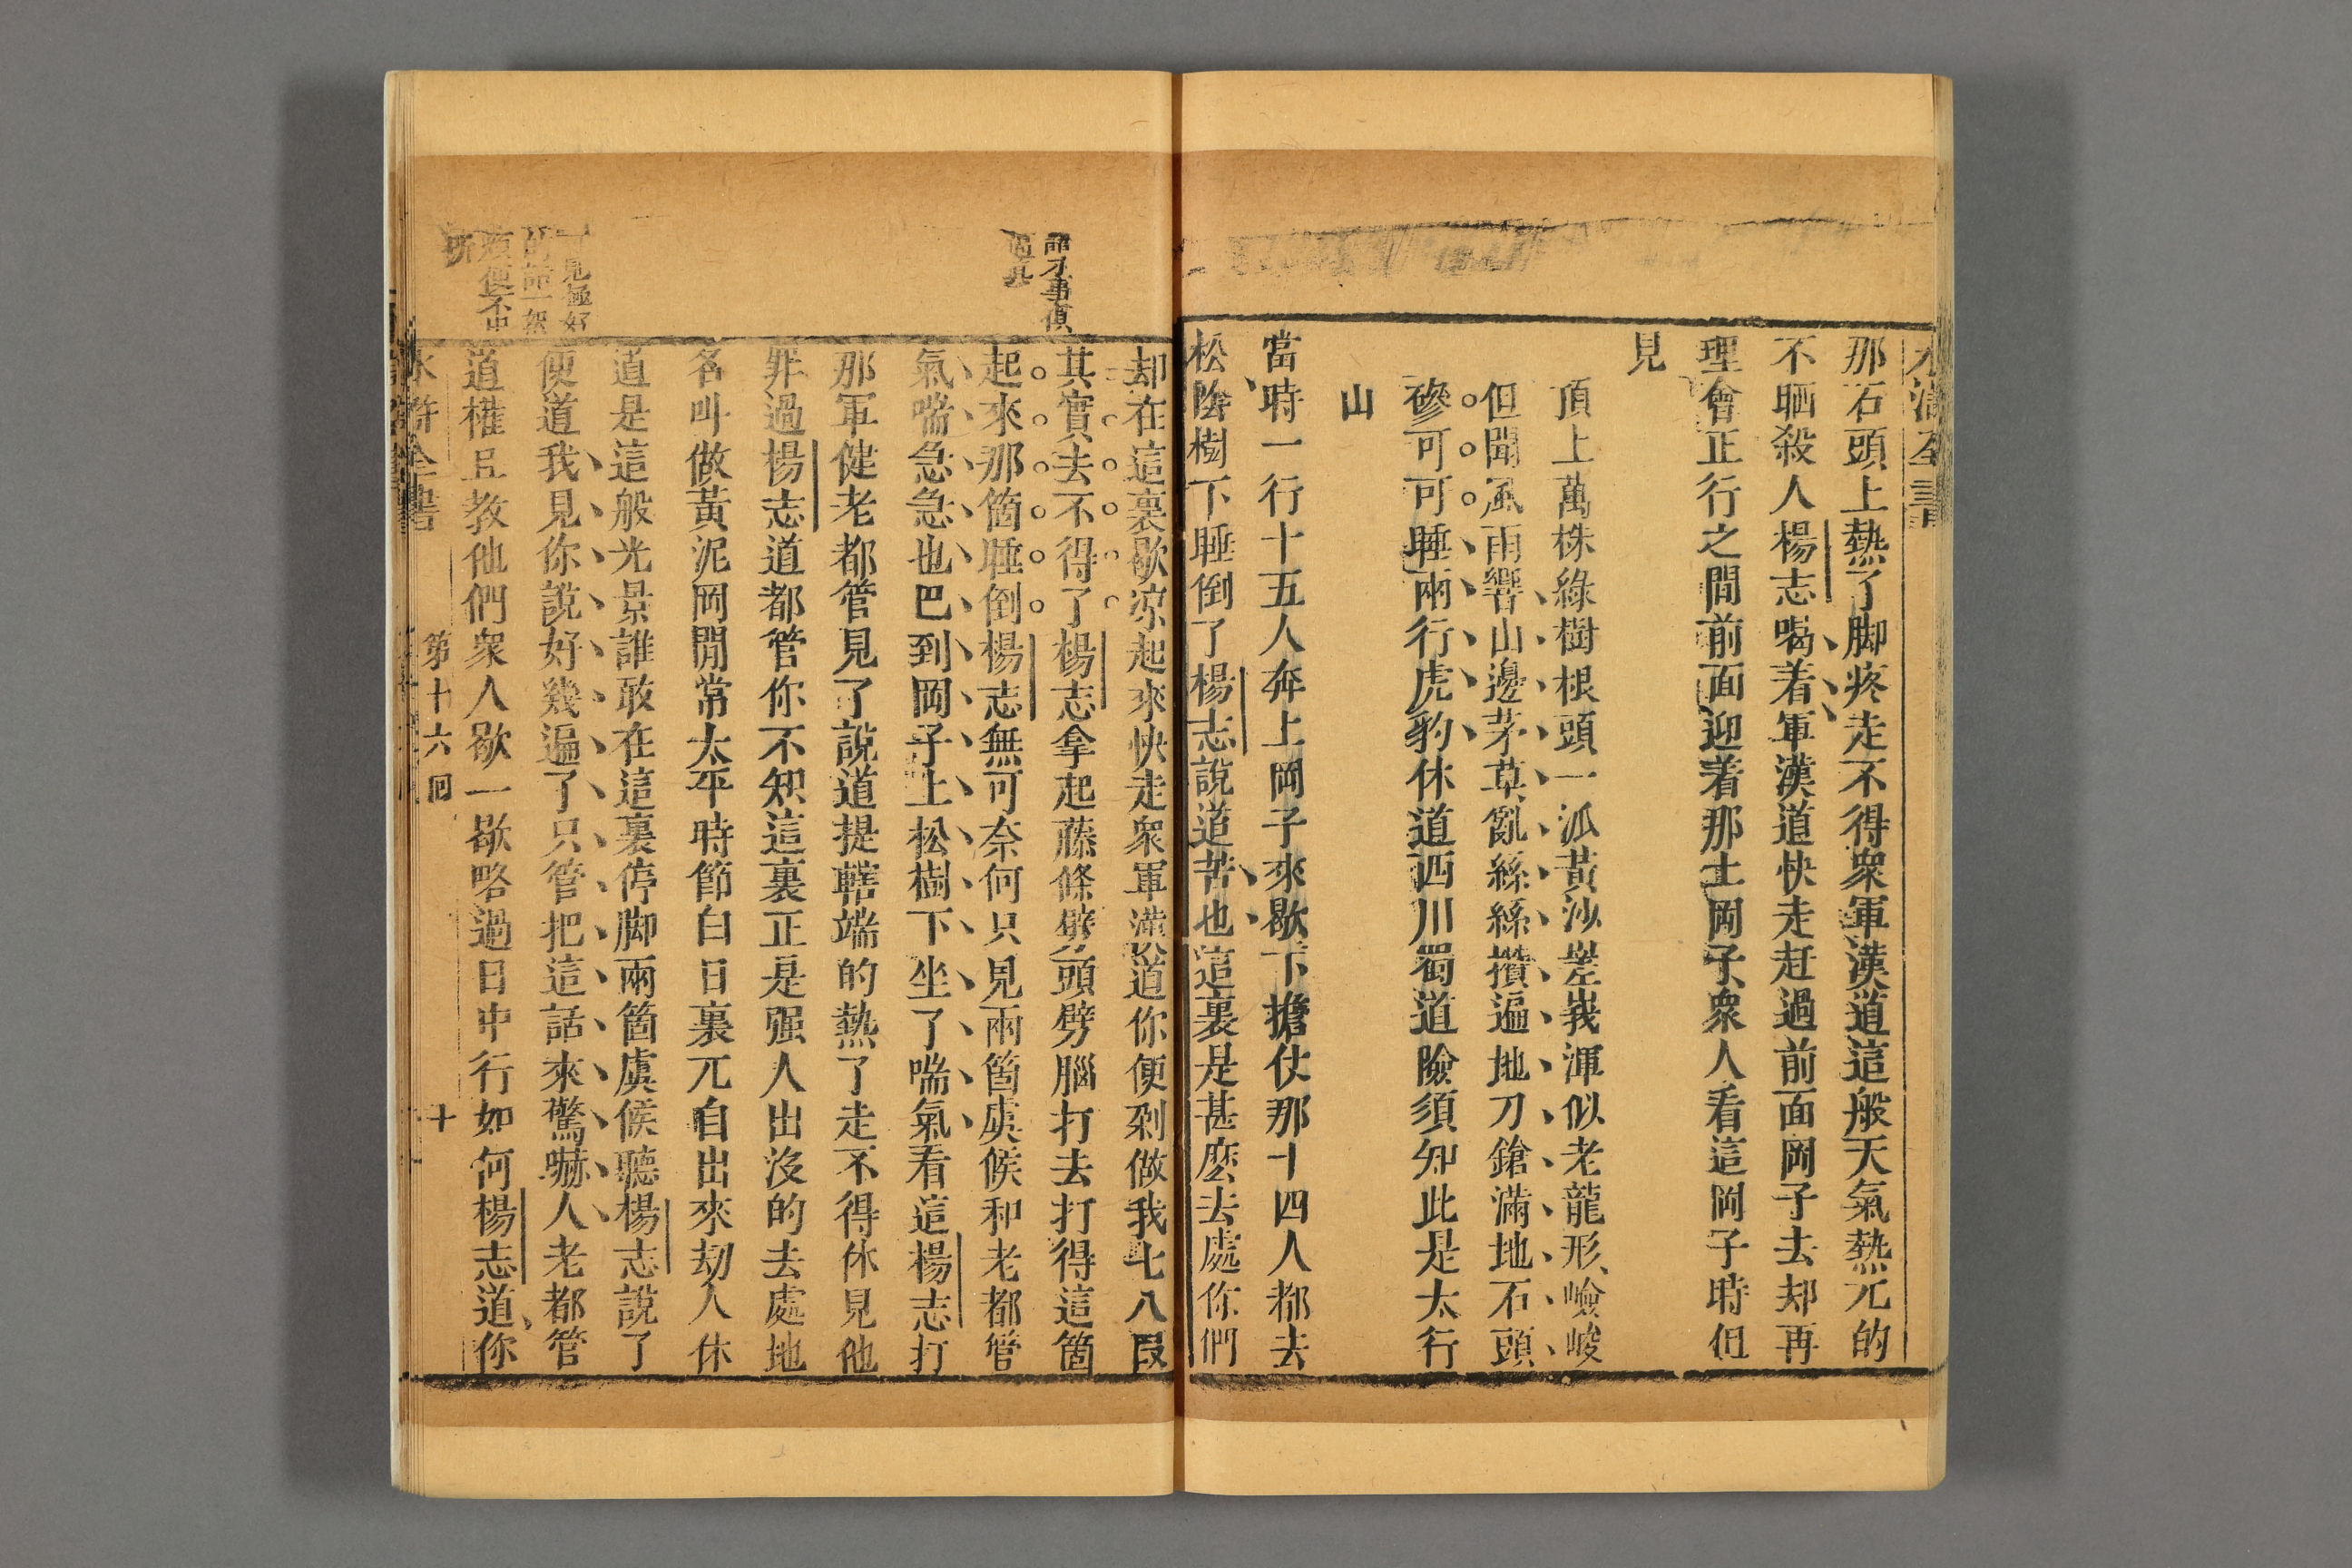 那石頭上熱了脚疼走不得衆軍漢道這般天氣熱兀的
不晒殺人楊志喝着軍漢道快走赶過前面岡子去却再
理會正行之間前面迎着那土岡子衆人看這岡子時但
見
頂上萬株綠樹根頭一派黃沙嵳峩渾似老龍形嶮峻
但聞風雨響山邊茅草亂絲絲攢遍地刀鎗滿地石頭
磣可可睡兩行虎豹休道西川蜀道險須知此是太行
山
當時一行十五人奔上岡子來歇下擔仗那十四人都去
松陰樹下睡倒了楊志說道苦也這裏是甚麽去處你們
却在這裏歇凉起來快走衆軍漢道你便剁做我七八段
其實去不得了楊志拿起藤條劈頭劈腦打去打得這箇
起來那箇睡倒楊志無可奈何只見兩箇虞候和老都管
氣喘急急也巴到岡子上松樹下坐了喘氣看這楊志打
那軍健老都管見了說道提轄端的熱了走不得休見他
罪過楊志道都管你不知這裏正是强人出沒的去處地
名叫做黃泥岡閒常太平時節白日裏兀自出來劫人休
道是這般光景誰敢在這裏停脚兩箇虞候聽楊志說了
便道我見你說好幾遍了只管把這話來驚嚇人老都管
道權且教他們衆人歇一歇略過日中行如何楊志道你
水滸全書 第十六回 十